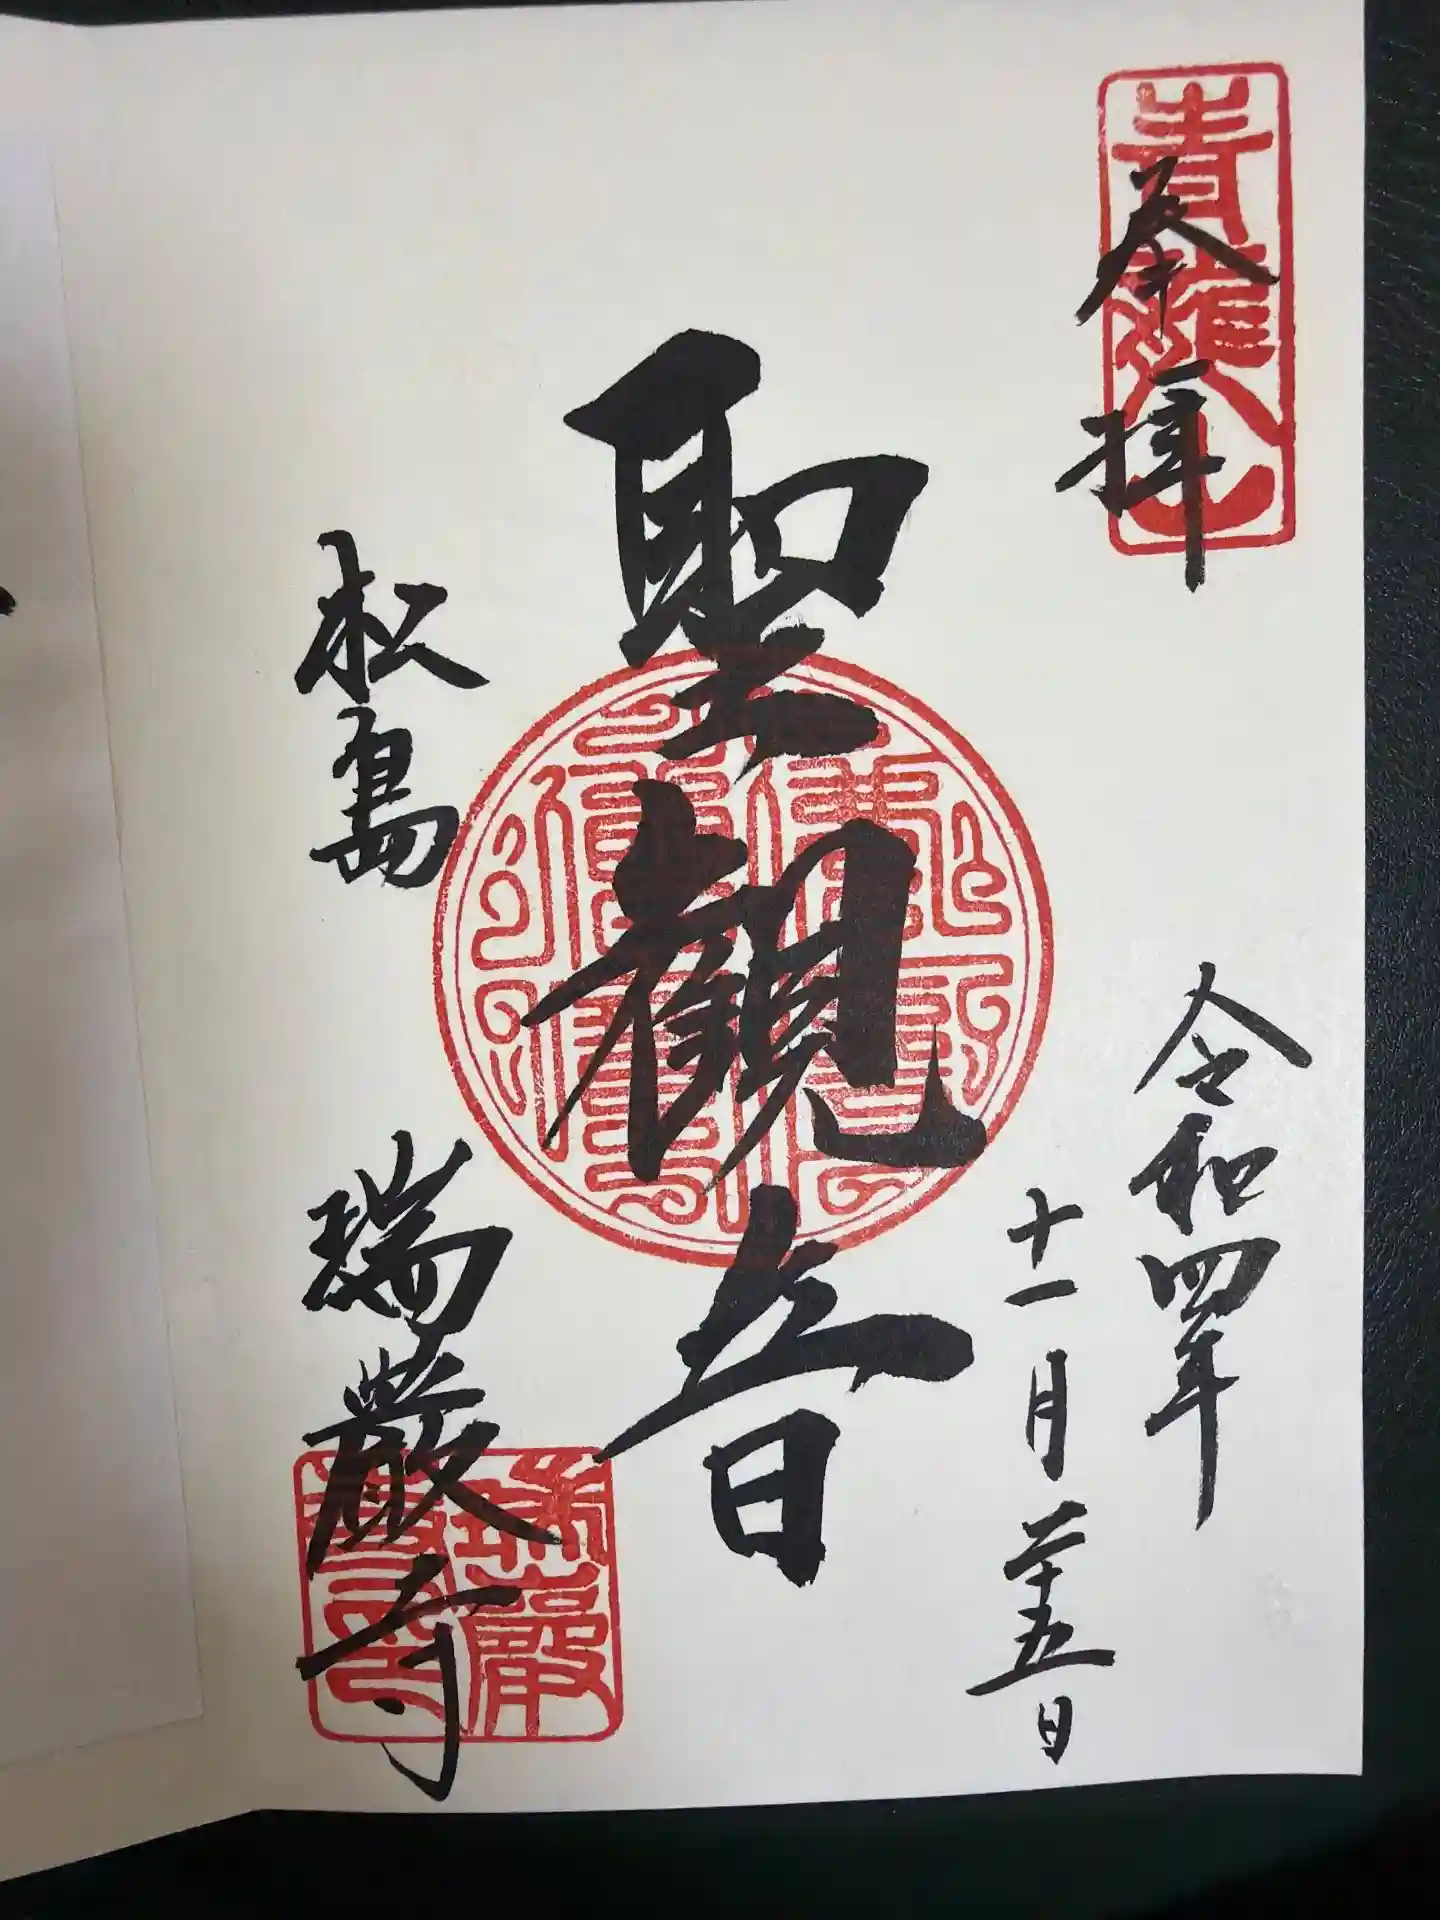 青龍山
奉拝
令和四年
十一月二十五日
聖観音
松島
瑞巌寺
瑞巌